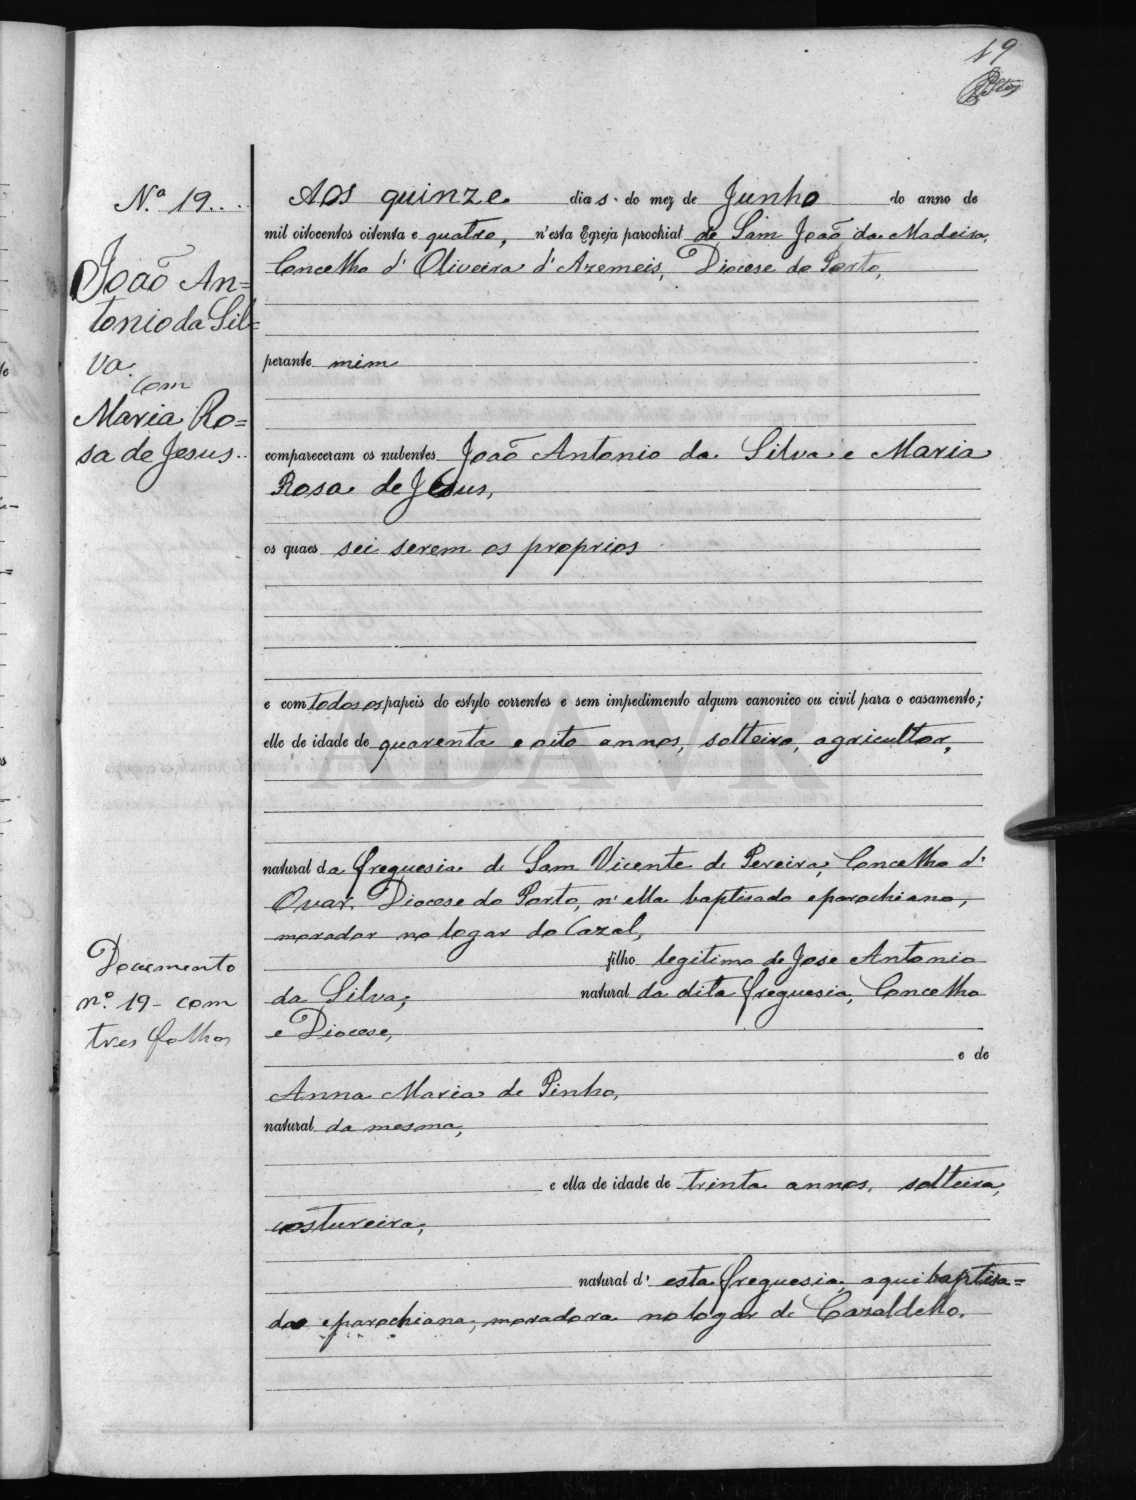 19
N.º 19..
João An=
tonio da Sil=
va.
com
Maria Ro=
sa de Jesus..
Documento
nº 19 - com
tres folhas
Aos quinze dias do mez de Junho do anno de
mil oitocentos oitenta e quatro, n'esta Egreja parochial de Sam João da Madeira,
Concelho d' Oliveira d' Azemeis, Diocese do Porto,
perante mim
compareceram os nubentes João Antonio da Silva e Maria
Rosa de Jesus,
os quaes sei serem os proprios
e com todos os papeis do estylo correntes e sem impedimento algum canonico ou civil para o casamento;
elle de idade de quarenta e oito annos, solteiro, agricultor,
natural da freguesia de Sam Vicente de Pereira, Concelho d'
Ovar, Diocese do Porto, n'ella baptisado e parochiano,
morador no logar do Cazal,
filho legitimo de Jose Antonio
da Silva, natural da dita freguesia, Concelho
e Diocese,
e de
Anna Maria de Pinho,
natural da mesma,
e ella de idade de trinta annos, solteira,
costureira,
natural d' esta freguesia, aqui baptisa=
da e parochiana, moradora no logar de Cazaldello.
ADAVR